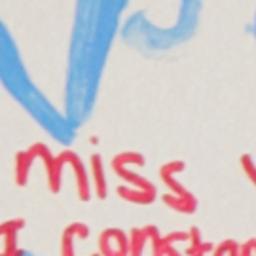 miss
I constan